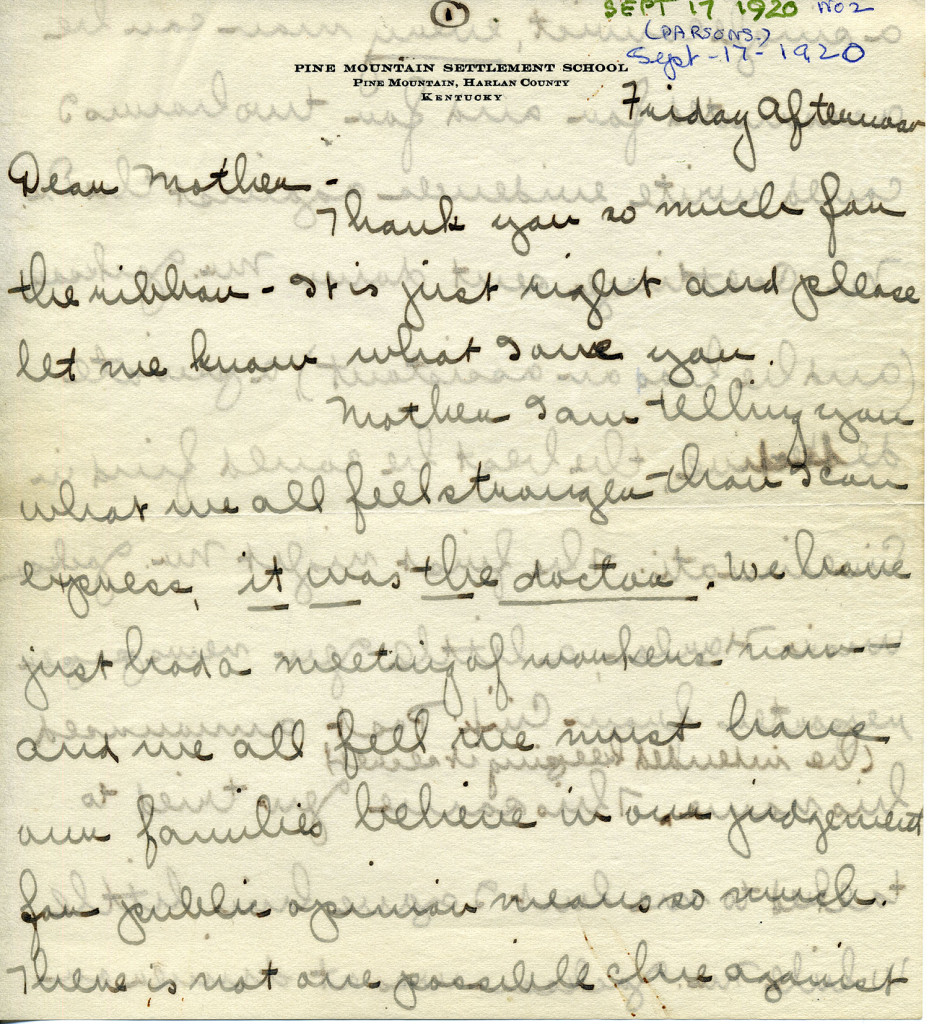 ①
SEPT 17 1920 NO 2
(PARSONS.)
Sept-17-1920
PINE MOUNTAIN SETTLEMENT SCHOOL
PINE MOUNTAIN, HARLAN COUNTY
KENTUCKY
Friday Afternoon
Dear Mother -
Thank you so much for
the ribbon - It is just right and please
let me know what I owe you.
Mother I am telling you
what we all feel stronger than I can
express, it was the doctor. We have
just had a meeting of workers now -
and we all fell we must have
our families believe in our judgement
for public opinion means so much.
There is not one possible clue against